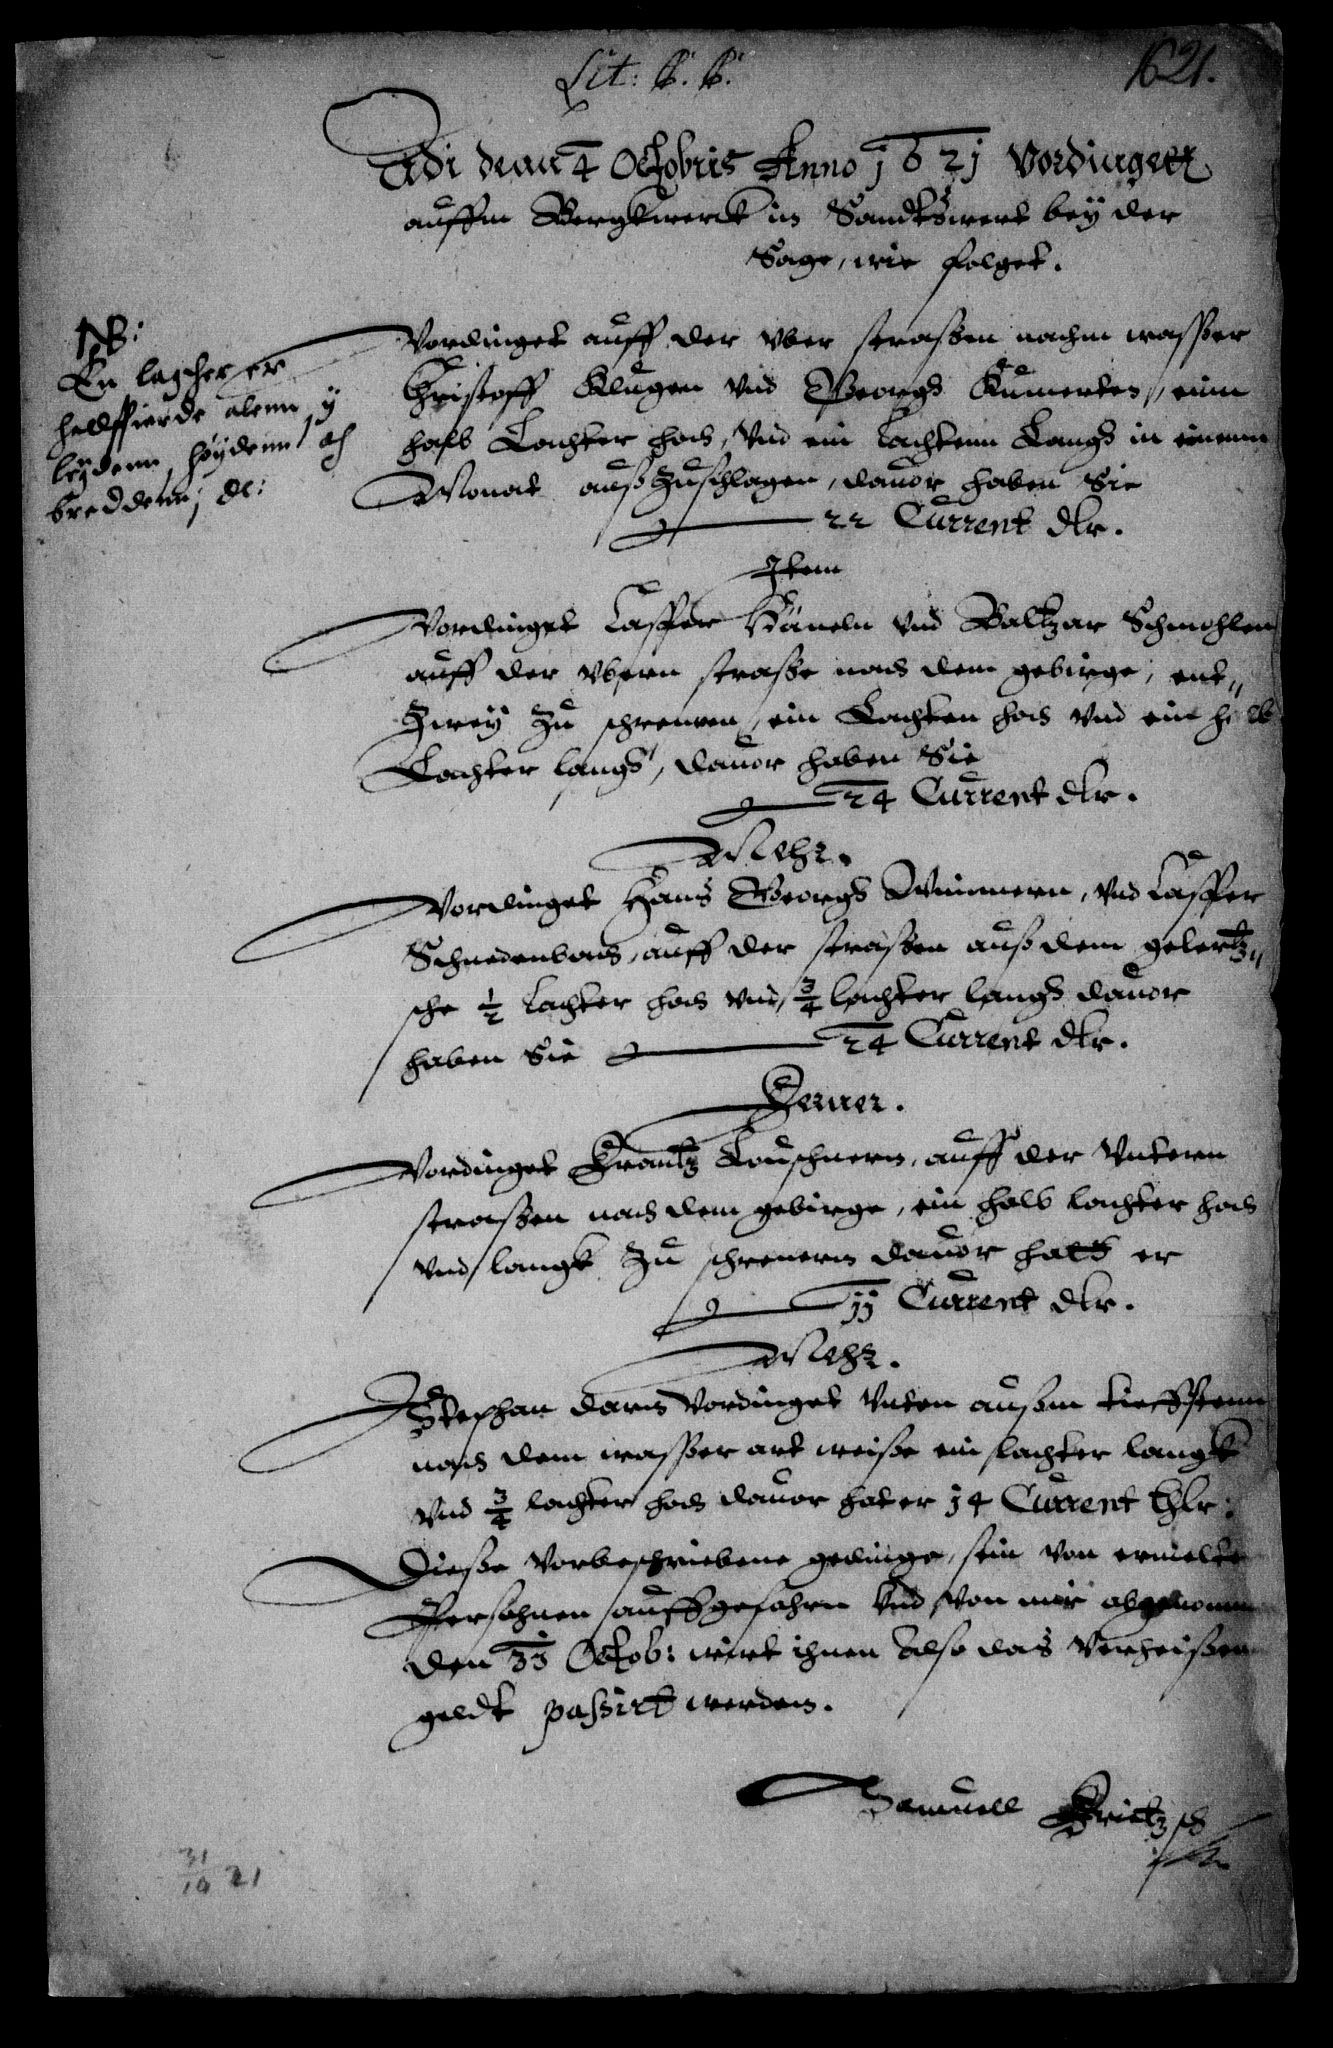 Lit: B. B.
1621.
Adi denn 4 Octobris Anno 1621 Vordinget
auffm Bergkwerck in Sandtswert bey der
Sage, wie folget.
NB:
En lagther er
halffierde alenn y
leÿdenn, höÿdenn och
breddenn; etc:
Vordinget auff der vber strassen nachm wasser
Christoff Klugen vnd Georgh Kumerten, einn
halb Lachter hoch, vnd ein Lachtenn Langh in einem
Monat auss zuschlagen, dauor haben Sie
22 Current dlr.
Item
Vordinget Casper Häneln vnd Baltzar Schmohlen
auff der vbern strasse nach dem gebirge, ent„
zwey zu schremen, ein Lachter hoch vnd ein halb
Lachter langh, dauor haben Sie
24 Current dlr.
Mehr.
Vordinget Hans Georgh Wimmern, vnd Casper
Schnedenbach, auff der strassen auss dem gelertz„
sche ½ Lachter hoch vnd ¾ lachter langh dauor
haben Sie 24 Current dlr.
Ferner.
Vordinget Frantz Lauschnern, auff der Vntern
strassen nach dem gebirge, ein halb lachter hoch
vnd langk zu schremen dauor hatt er
11 Current dlr.
Mehr.
Stephan darn Vordinget Vnten aussm tieffstenn
nach dem wasser ort weise ein lachter langk
vnd ¾ lachter hoch dauor hat er 14 Current thlr:
Diese Vorbeschriebene gedinge, sein von ermelte
Persohnen auffgefahrn vnd von mir abgenomm
den 31 Octob: wirt ihnen also das Verheissen
geldt passirt werden.
Samuell Fritzsch
31/10 21